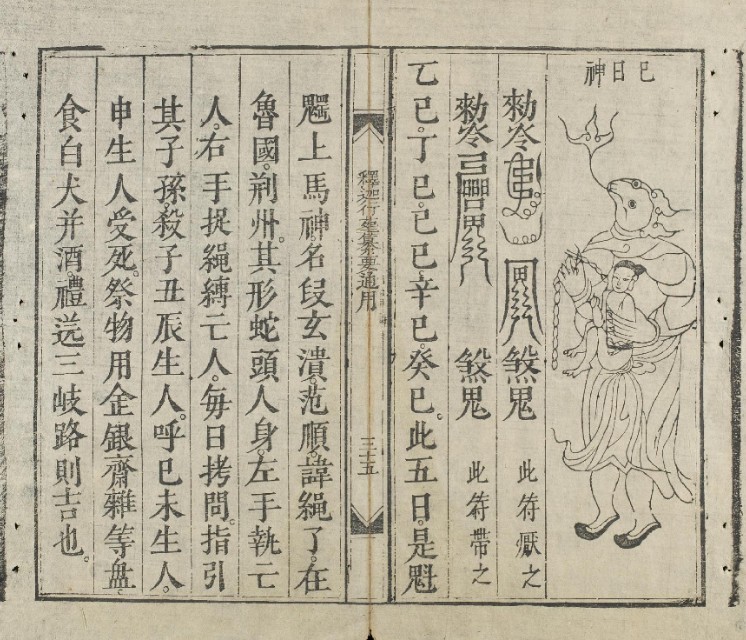 神日巳
勑令 煞鬼 此符厭之
勑令 煞鬼 此符帶之
乙巳。丁巳。己巳辛巳。癸巳。此五日。是魁
釋迦行 纂要通用
三十五
上馬神。名段玄潰。范順。諱繩了。在
魯國。荊州。其形蛇頭人身。左手執亡
人。右手捉繩縛亡人。毎日拷問。指引
其子孫。殺子丑辰生人。呼巳未生人。
申生人受死。祭物用金銀齋雜等盤。
食白犬并酒。禮送三岐路則吉也。